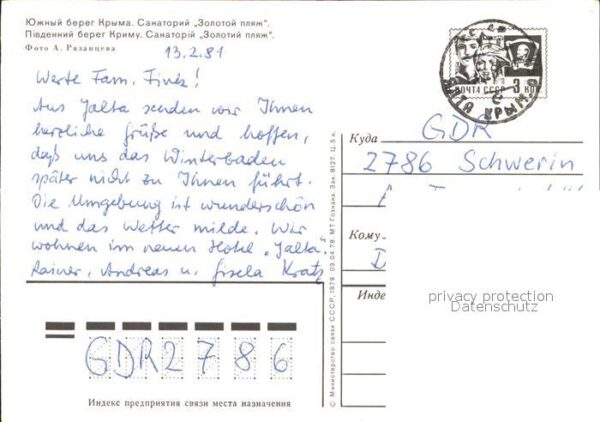 Южный берег Крыма. Санаторий „Золотой пляж“.
Південний берег Криму. Санаторій „Золотий пляж“.
Фото А. Рязанцева
13.2.81
Werte Fam. Finck!
Aus Jalta senden wir Ihnen
herzliche Grüße und hoffen,
daß uns das Winterbaden
später nicht zu Ihnen führt.
Die Umgebung ist wunderschön
und das Wetter milde. Wir
wohnen im neuen Hotel „Jalta".
Rainer, Andreas u. Gisela Kratz
GDR 2786
Индекс предприятия связи места назначения
© Министерство связи СССР. 1979. 03.04.79. МТ Гознака. Зак. 8127. Ц. 5 к.
ПОЧТА СССР 3 КОП
ЯЛТА КРЫМ.О
Куда GDR
2786 Schwerin
Кому
Инде
privacy protection
Datenschutz